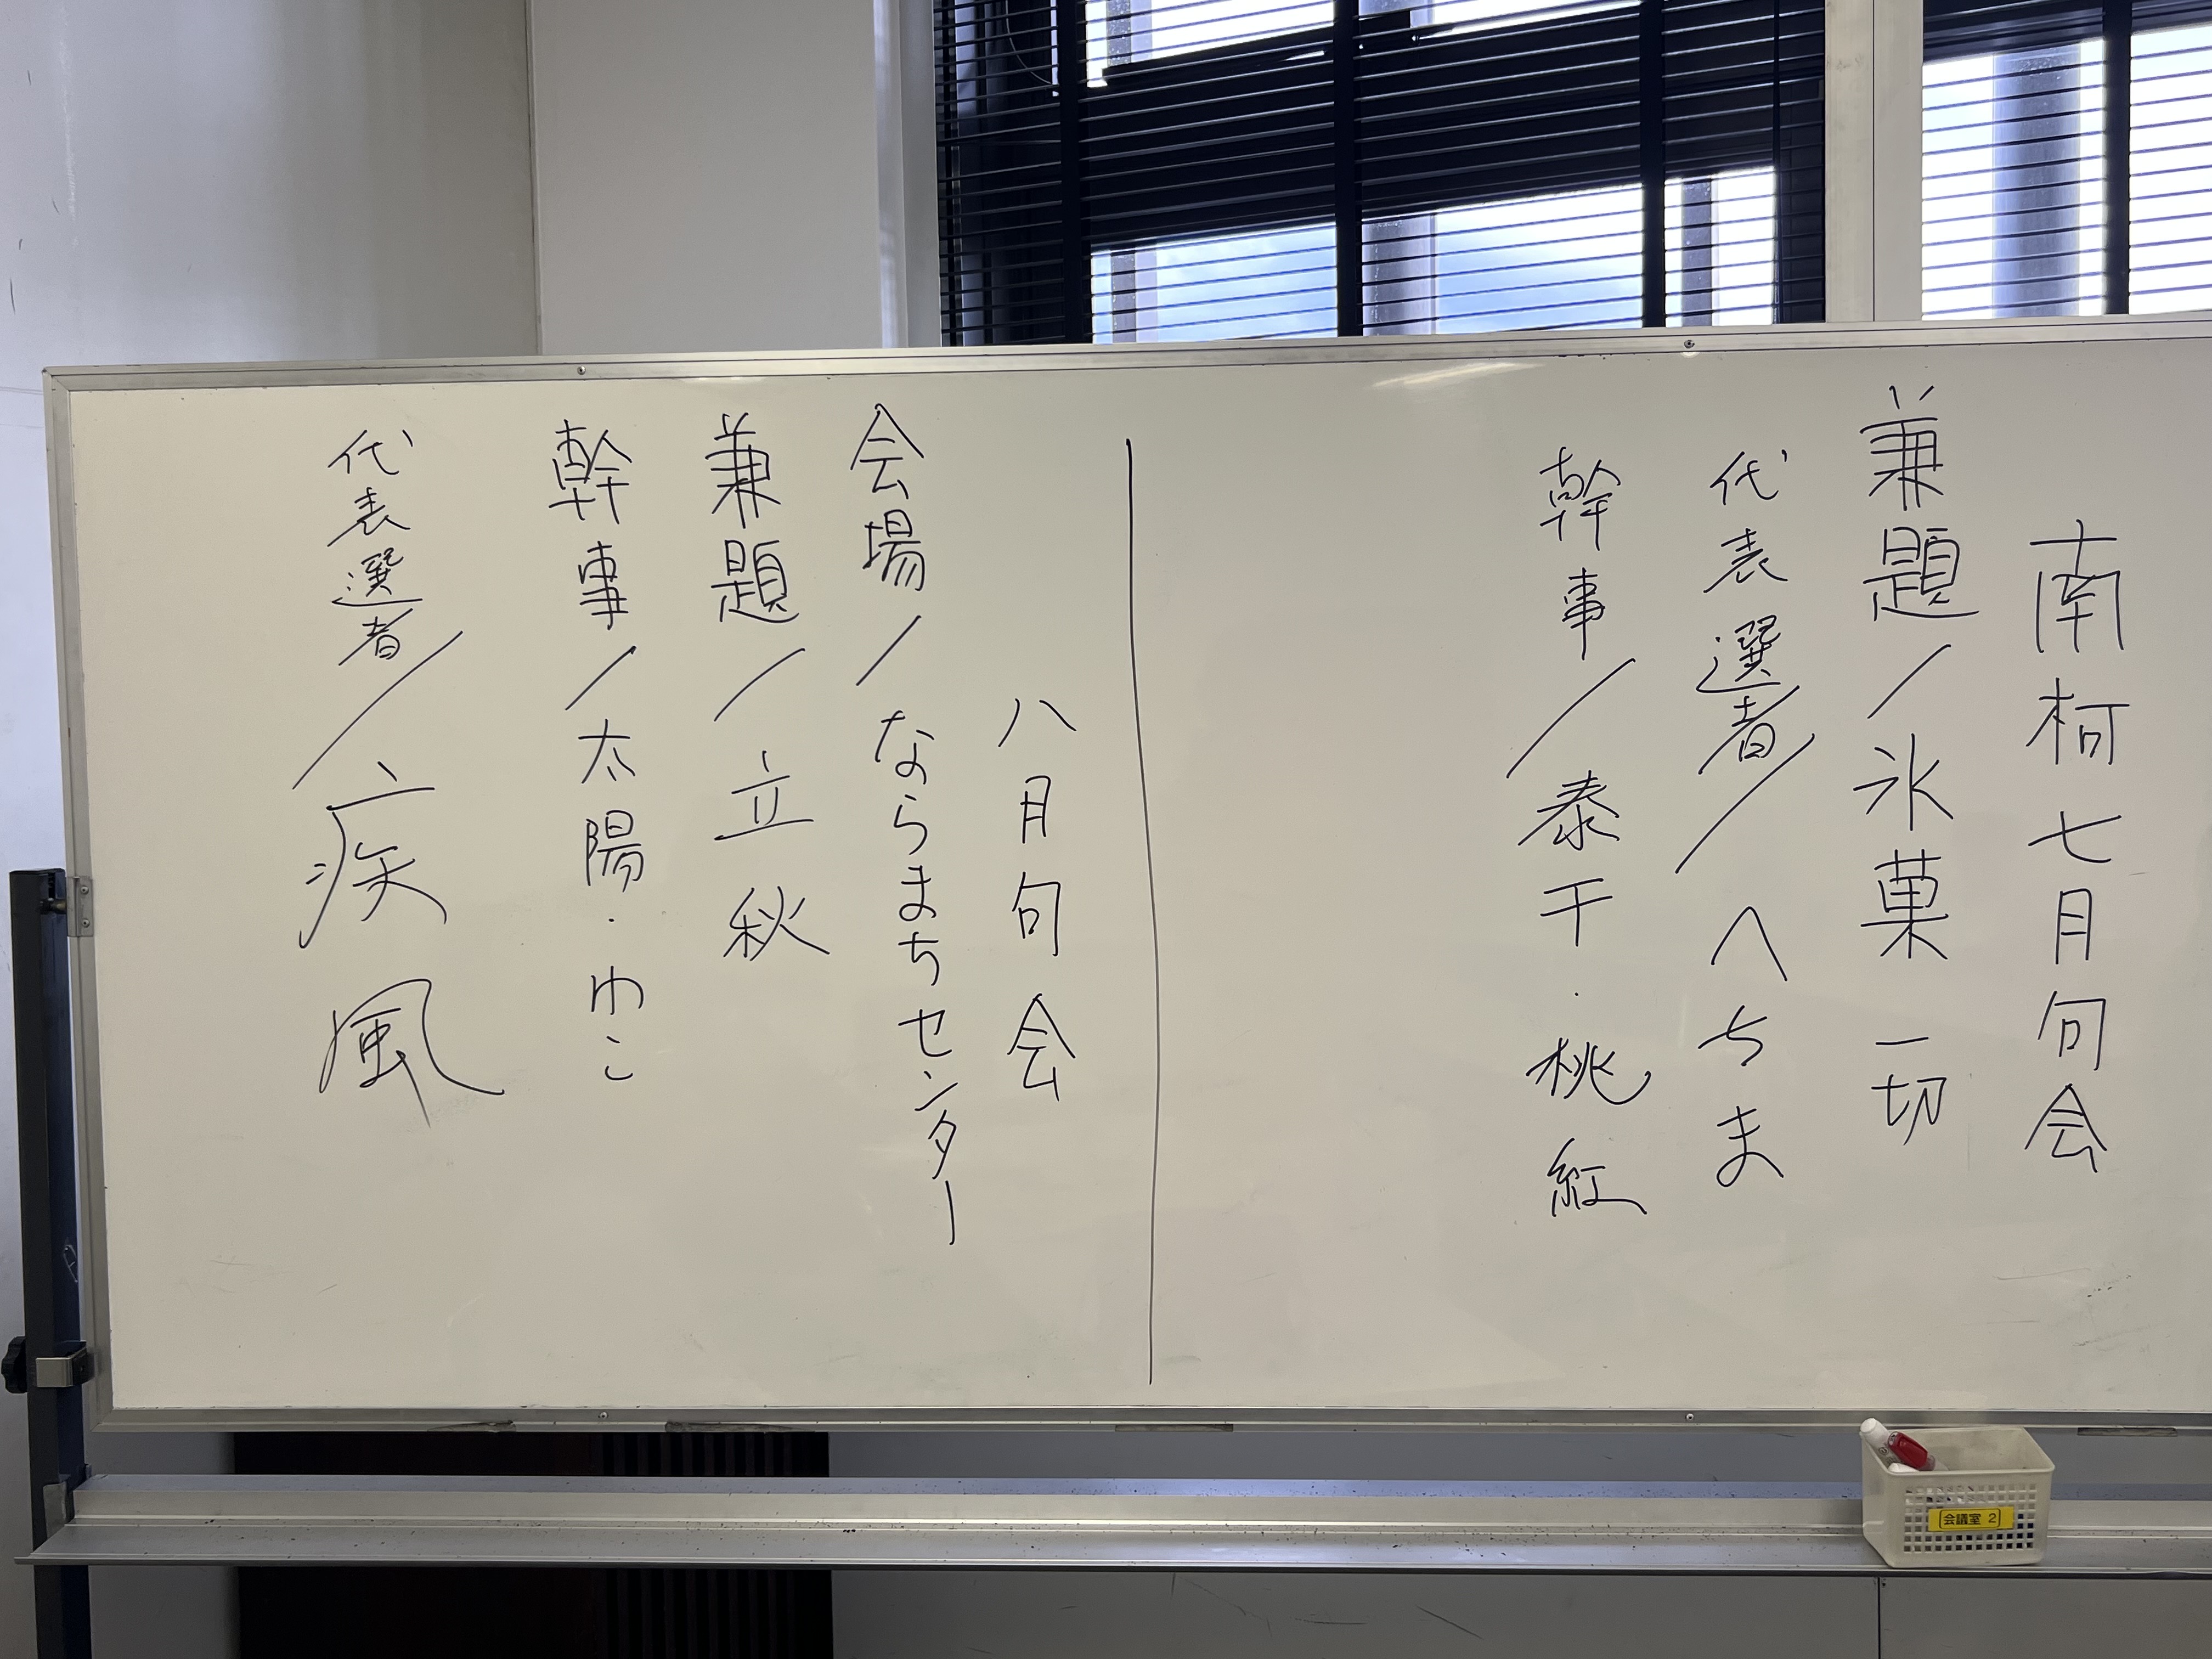 南柯七月句会
兼題／氷菓一切
代表選者／へちま
幹事／泰干・桃紅
八月句会
会場／ならまちセンター
兼題／立秋
幹事／太陽・ゆこ
代表選者／疾風
会議室 2